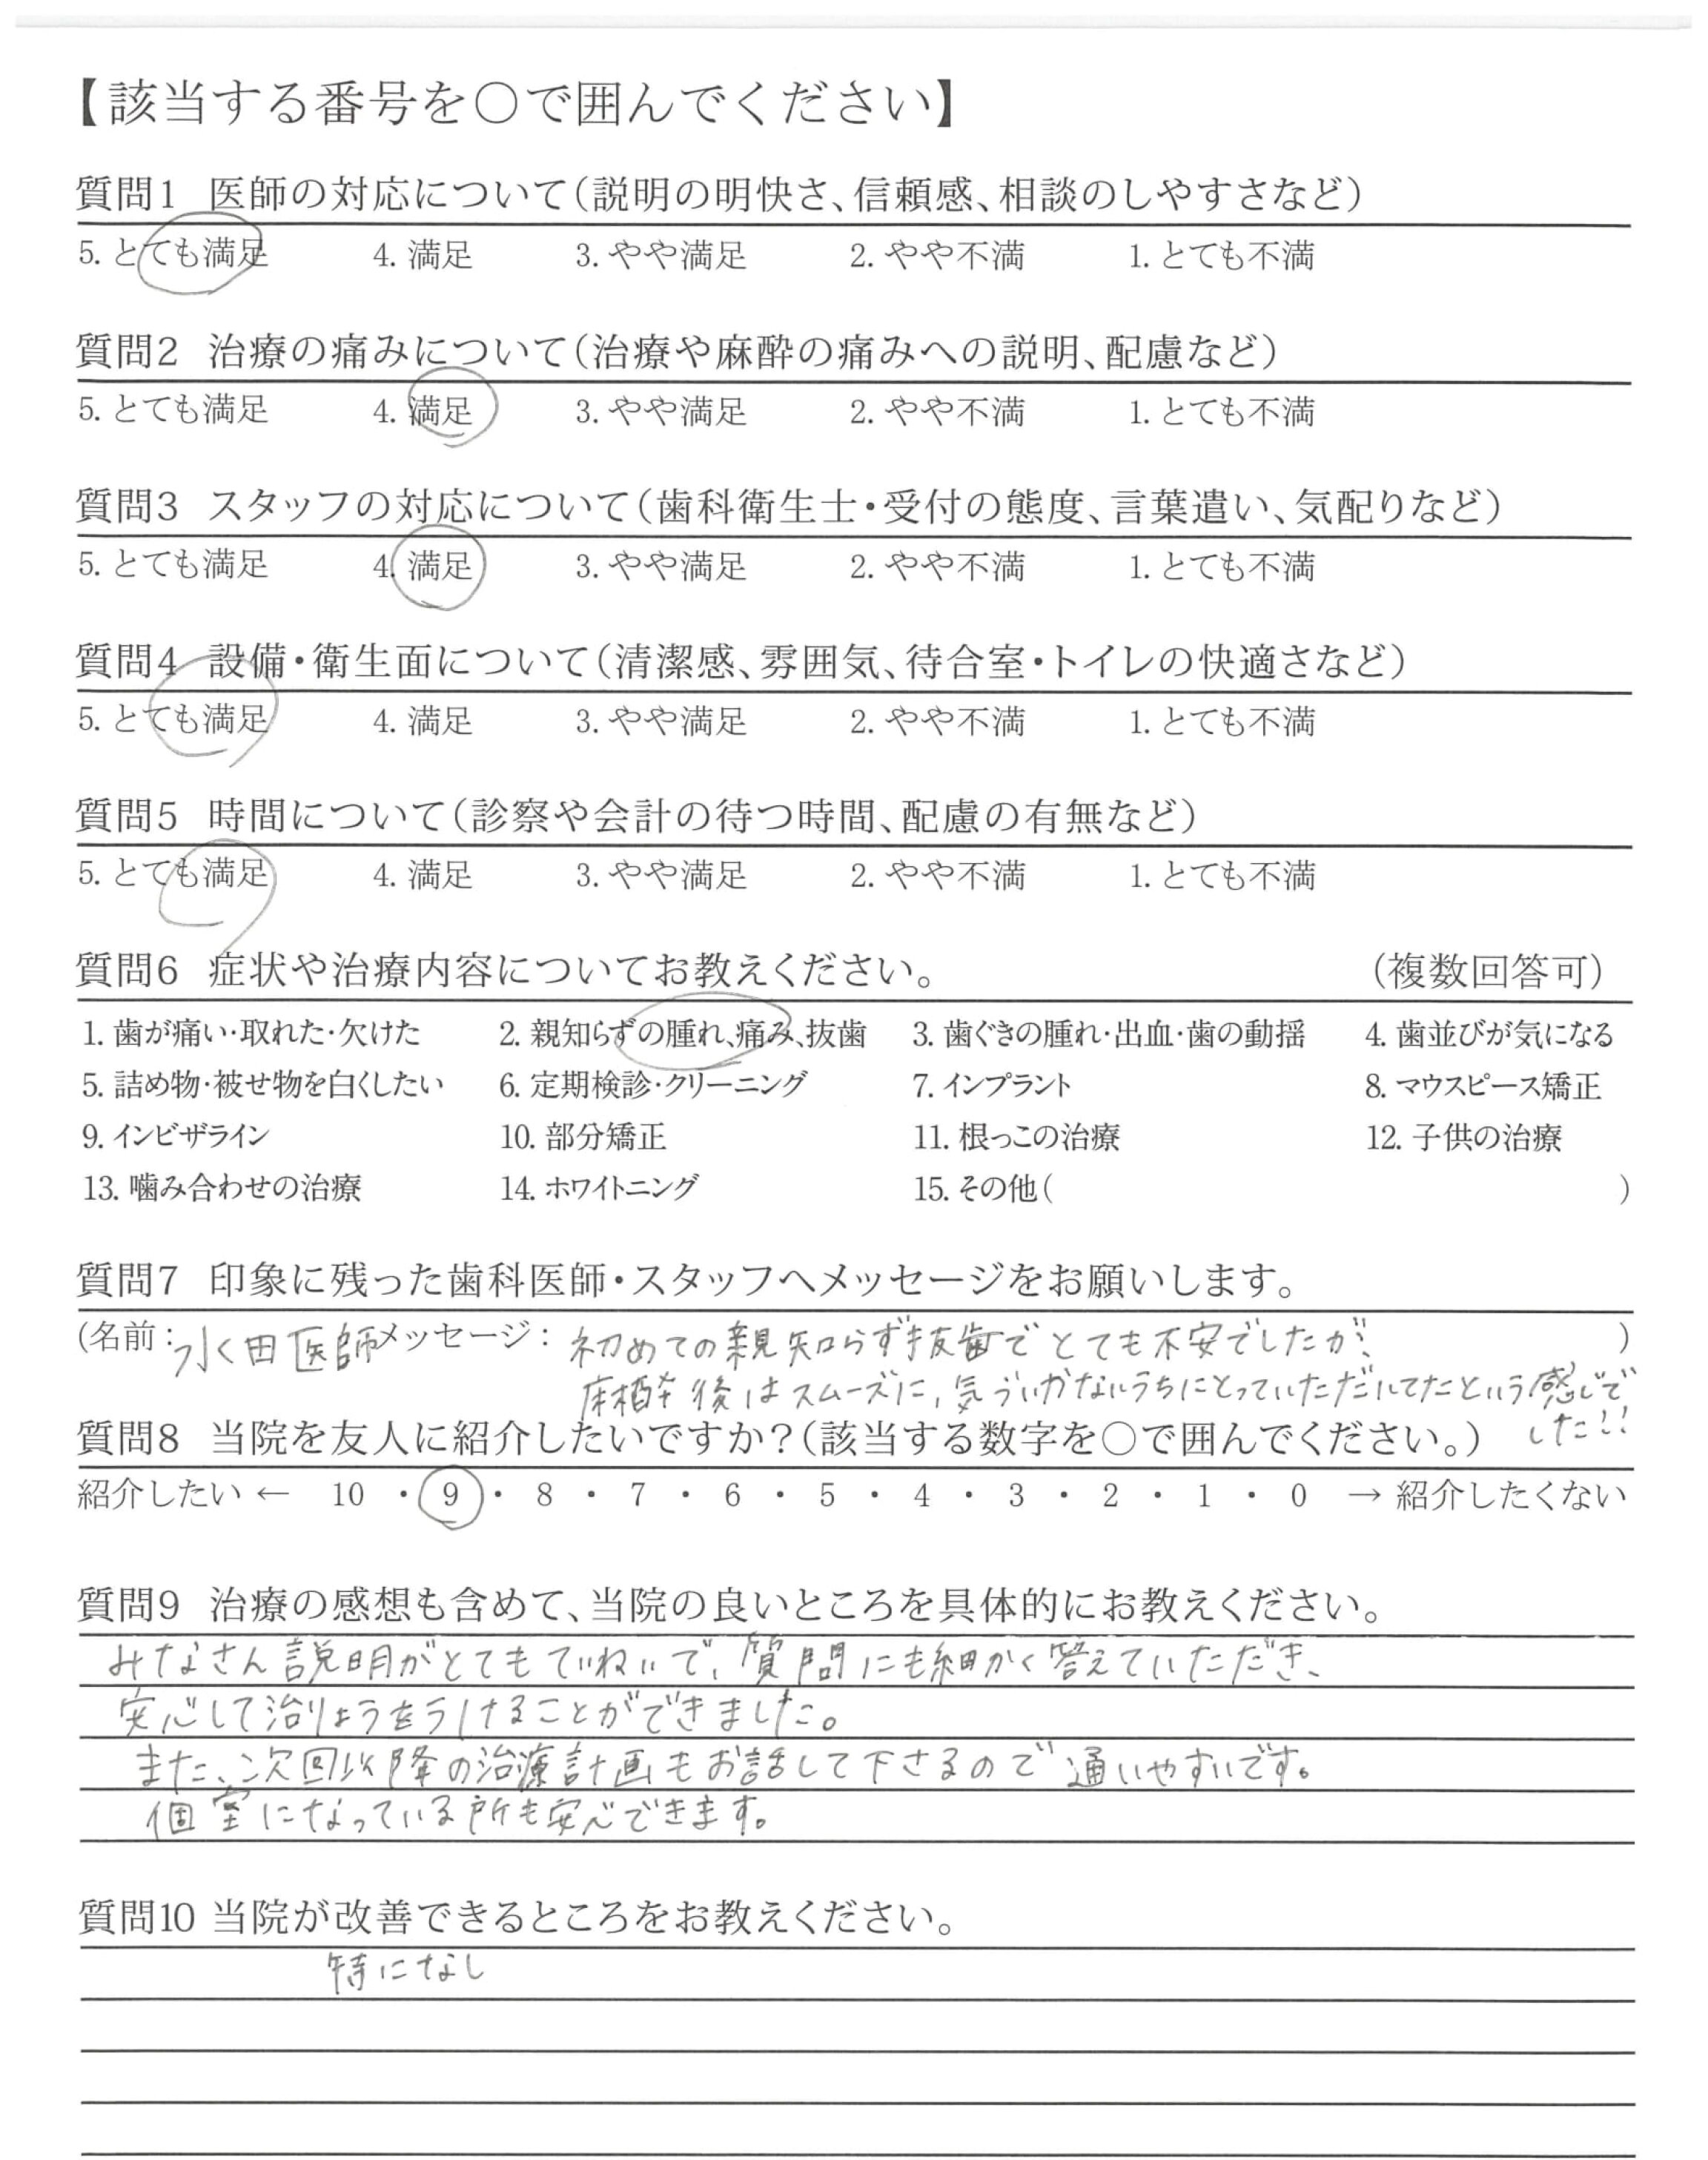 【該当する番号を○で囲んでください】
質問1 医師の対応について(説明の明快さ、信頼感、相談のしやすさなど)
5. とても満足 4. 満足 3. やや満足 2. やや不満 1. とても不満
質問2 治療の痛みについて(治療や麻酔の痛みへの説明、配慮など)
5. とても満足 4. 満足 3. やや満足 2. やや不満 1. とても不満
質問3 スタッフの対応について(歯科衛生士・受付の態度、言葉遣い、気配りなど)
5. とても満足 4. 満足 3. やや満足 2. やや不満 1. とても不満
質問4 設備・衛生面について(清潔感、雰囲気、待合室・トイレの快適さなど)
5. とても満足 4. 満足 3. やや満足 2. やや不満 1. とても不満
質問5 時間について(診察や会計の待つ時間、配慮の有無など)
5. とても満足 4. 満足 3. やや満足 2. やや不満 1. とても不満
質問6 症状や治療内容についてお教えください。 (複数回答可)
1. 歯が痛い・取れた・欠けた 2. 親知らずの腫れ、痛み、抜歯 3. 歯ぐきの腫れ・出血・歯の動揺 4. 歯並びが気になる
5. 詰め物・被せ物を白くしたい 6. 定期検診・クリーニング 7. インプラント 8. マウスピース矯正
9. インビザライン 10. 部分矯正 11. 根っこの治療 12. 子供の治療
13. 噛み合わせの治療 14. ホワイトニング 15. その他( )
質問7 印象に残った歯科医師・スタッフへメッセージをお願いします。
(名前:水田医師 メッセージ: 初めての親知らず抜歯でとても不安でしたが、 )
麻酔後はスムーズに、気づいがないうちにとっていただいてたという感じで
した!!
質問8 当院を友人に紹介したいですか?(該当する数字を○で囲んでください。)
紹介したい ← 10 ・ 9 ・ 8 ・ 7 ・ 6 ・ 5 ・ 4 ・ 3 ・ 2 ・ 1 ・ 0 → 紹介したくない
質問9 治療の感想も含めて、当院の良いところを具体的にお教えください。
みなさん説明がとてもていねいで、質問にも細かく答えていただき、
安心して治りょうをうけることができました。
また、次回以降の治療計画もお話して下さるので通いやすいです。
個室になっている所も安心できます。
質問10 当院が改善できるところをお教えください。
特になし